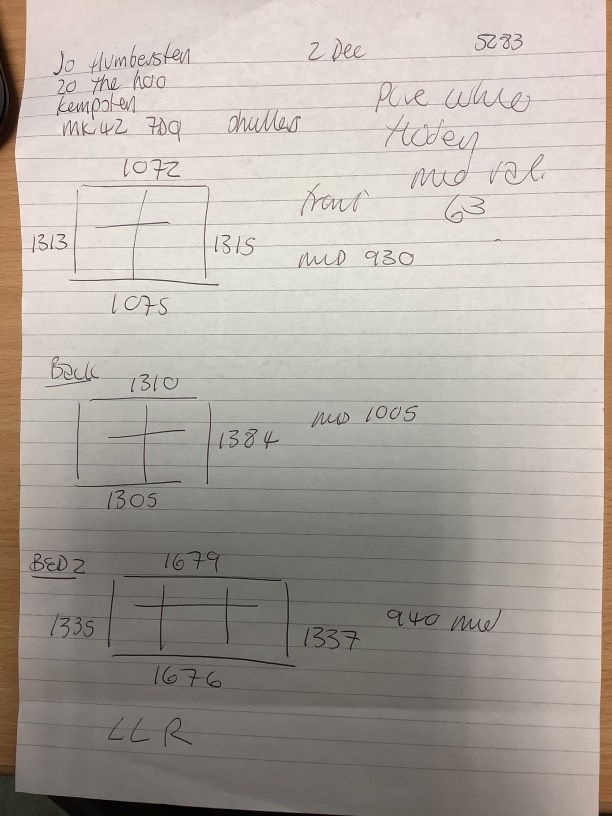 Jo Humbersten 2 Dec 5283
20 the hoo
Kempsten
MK42 7DQ shutters
Pure White
mid rail
63
1072
front
1313 1315
mid 930
1075
Back
1310
mid 1005
1384
1305
BED 2
1679
1335 1337
940 mid
1676
LLR